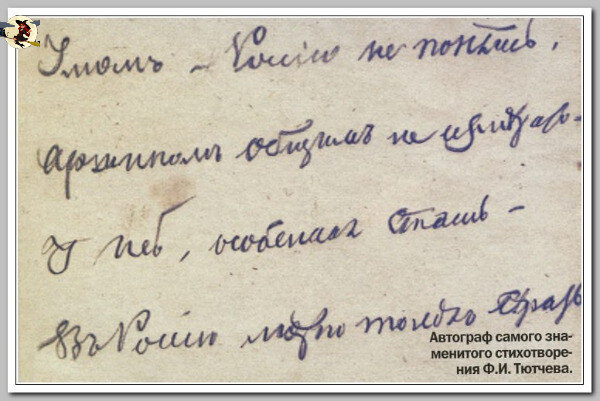 Умомъ – Россію не понять,
Аршиномъ общимъ не измѣрить –
У ней, особенная стать –
Въ Россію можно только вѣрить
Автограф самого зна-
менитого стихотворе-
ния Ф.И. Тютчева.